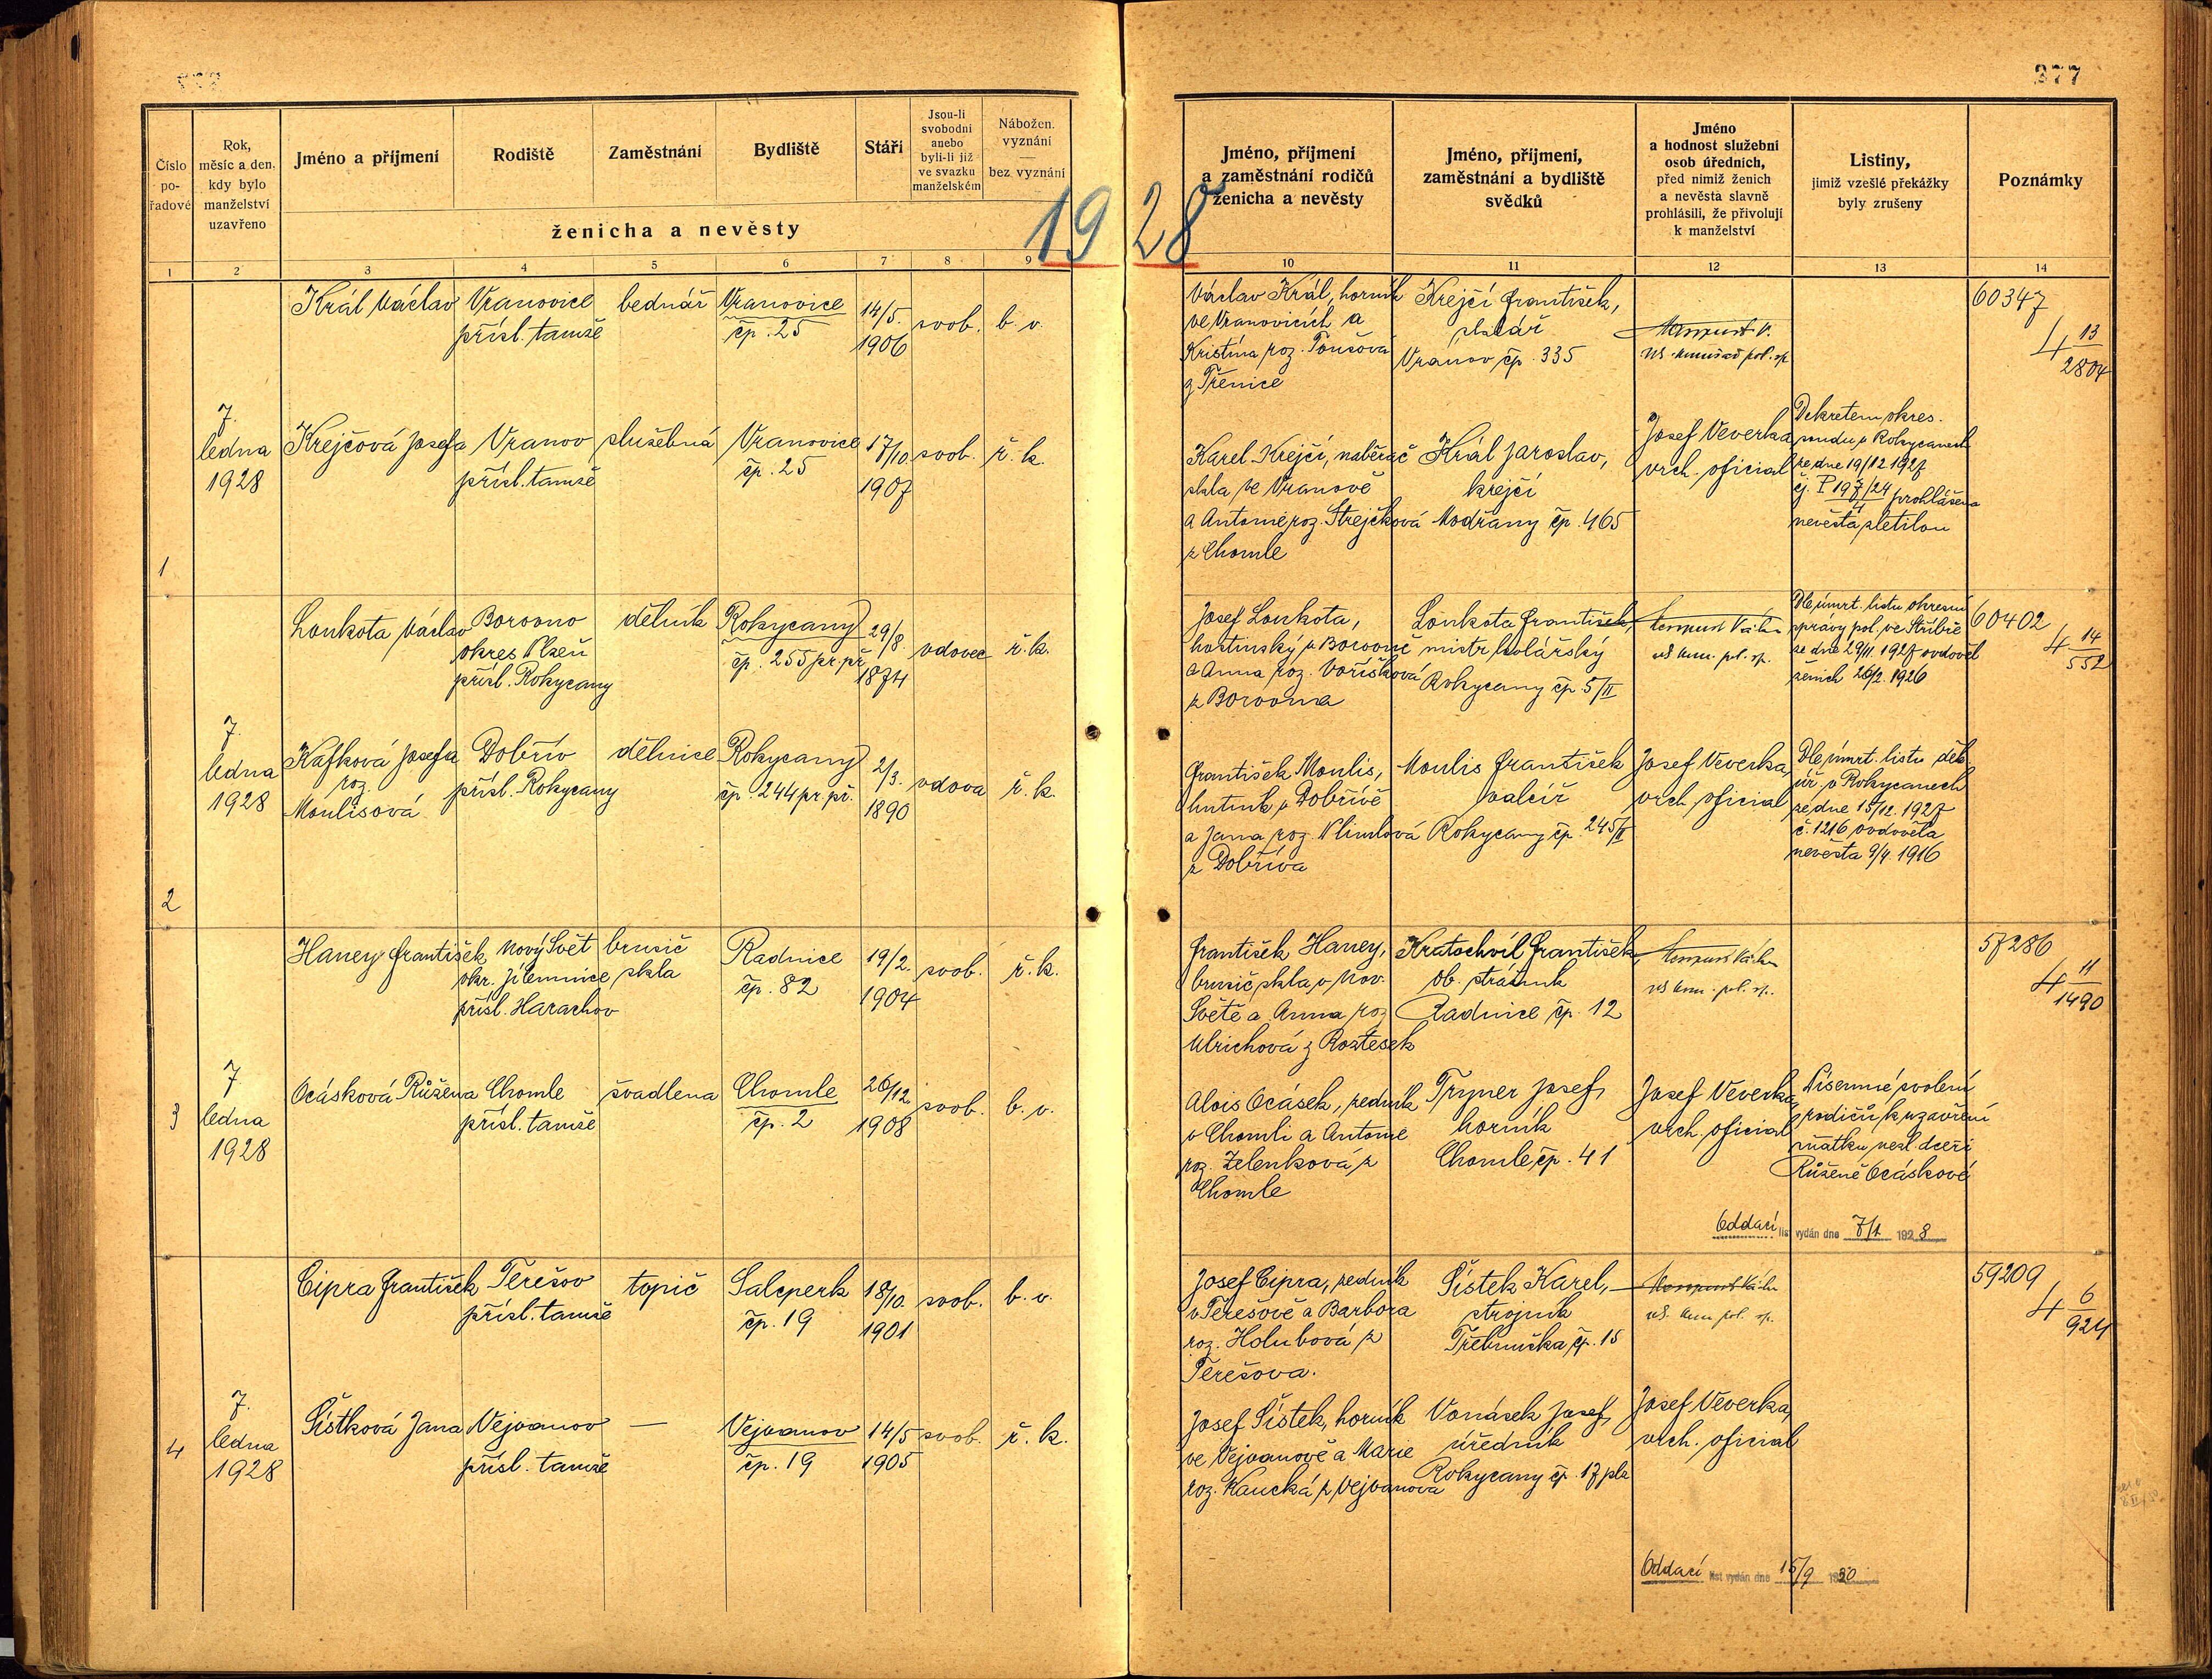 377
Číslo po-řadové
Rok, měsíc a den, kdy bylo manželství uzavřeno
Jméno a příjmení
Rodiště
Zaměstnání
Bydliště
Stáří
Jsou-li svobodni anebo byli-li již ve svazku manželském
Nábožen. vyznání — bez vyznání
ženicha a nevěsty
1928
Jméno, příjmení a zaměstnání rodičů ženicha a nevěsty
Jméno, příjmení, zaměstnání a bydliště svědků
Jméno a hodnost služební osob úředních, před nimiž ženich a nevěsta slavně prohlásili, že přivolují k manželství
Listiny, jimiž vzešlé překážky byly zrušeny
Poznámky
1 2 3 4 5 6 7 8 9 10 11 12 13 14
1
7. ledna 1928
Král Václav
Vranovice
přísl. tamže
bednář
Vranovice
čp. 25
14/5.
1906
svob.
b. v.
Václav Král, horník
ve Vranovicích a
Kristína roz. Toušová
z Těnice
Krejčí František,
sklář
Vranov čp. 335
60347
4 13/2804
Krejčová Josefa
Vranov
přísl. tamže
služebná
Vranovice
čp. 25
17/10.
1907
svob.
ř. k.
Karel Krejčí, naběrač
skla ve Vranově
a Antonie roz. Strejčková
z Chomle
Král Jaroslav,
krejčí
Modřany čp. 465
Josef Veverka
vrch. oficial
Dekretem okres.
soudu v Rokycanech
ze dne 19/12 1927
čj. P 197/24 prohlášena
4
nevěsta zletilou
2
7. ledna 1928
Loukota Václav
Borovno
okres Plzeň
přísl. Rokycany
dělník
Rokycany
čp. 255 pr. př.
29/8.
1874
vdovec
ř. k.
Josef Loukota,
hostinský v Borovně
a Anna roz. Voříšková
z Borovna
Loukota František,
mistr kolářský
Rokycany čp 5/II
Dle úmrt. listu okresní
správy pol. ve Stříbře
ze dne 29/11. 1927 ovdověl
ženich 26/2. 1926
60402
4 14/552
Kafková Josefa
roz.
Moulisová
Dobřív
přísl. Rokycany
dělnice
Rokycany
čp. 244 pr. př.
2/3.
1890
vdova
ř. k.
František Moulis,
hutník v Dobřívě
a Jana roz. Klimtová
z Dobříva
Moulis František
valcíř
Rokycany čp. 245/II
Josef Veverka,
vrch. oficial
Dle úmrt. listu děk
úř. v Rokycanech
ze dne 15/12. 1927
č. 1216 ovdověla
nevěsta 9/4. 1916
3
7. ledna 1928
Haney František
Nový Svět
okr. Jilemnice
přísl. Harachov
brusič
skla
Radnice
čp. 82
19/2.
1904
svob.
ř. k.
František Haney,
brusič skla v Nov.
Světě a Anna roz
Ulrichová z Roztesek
Kratochvíl František,
ob. strážník
Radnice čp. 12
57286
4 11/1490
Ocásková Růžena
Chomle
přísl. tamže
švadlena
Chomle
čp. 2
26/12
1908
svob.
b. v.
Alois Ocásek, zedník
v Chomli a Antonie
roz. Zelenková z
Chomle
Tryner Josef,
horník
Chomle čp. 41
Josef Veverka,
vrch. oficial
Písemné svolení
rodičů k uzavření
sňatku nezl. dceři
Růženě Ocáskové
Oddací list vydán dne 7/1 1928
4
7. ledna 1928
Cipra František
Terešov
přísl. tamže
topič
Salcperk
čp. 19
18/10.
1901
svob.
b. v.
Josef Cipra, zedník
v Terešově a Barbora
roz. Holubová z
Terešova.
Šístek Karel,
strojník
Třebnuška čp. 15
59209
4 6/924
Šístková Jana
Vejvanov
přísl. tamže
—
Vejvanov
čp. 19
14/5
1905
svob.
ř. k.
Josef Šístek, horník
ve Vejvanově a Marie
roz. Kaucká z Vejvanova
Vonásek Josef,
úředník
Rokycany čp. 17 pla
Josef Veverka,
vrch. oficial
Oddací list vydán dne 15/9 1930